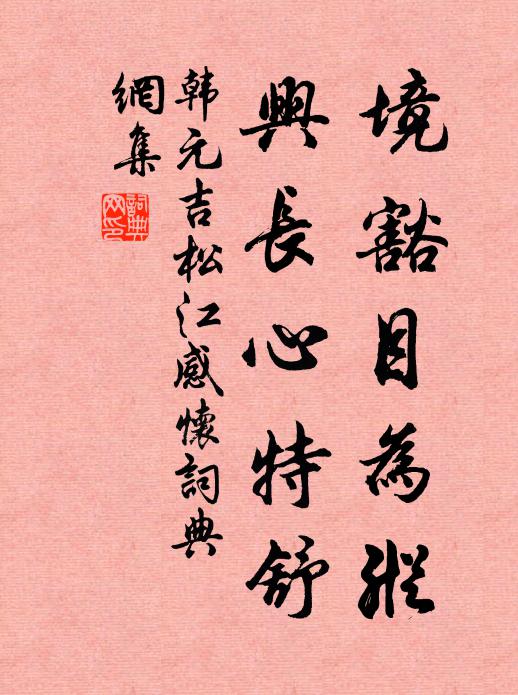 境豁目為縱
興長心特舒
韩元吉松江感懷詞典
網集
詞典網印